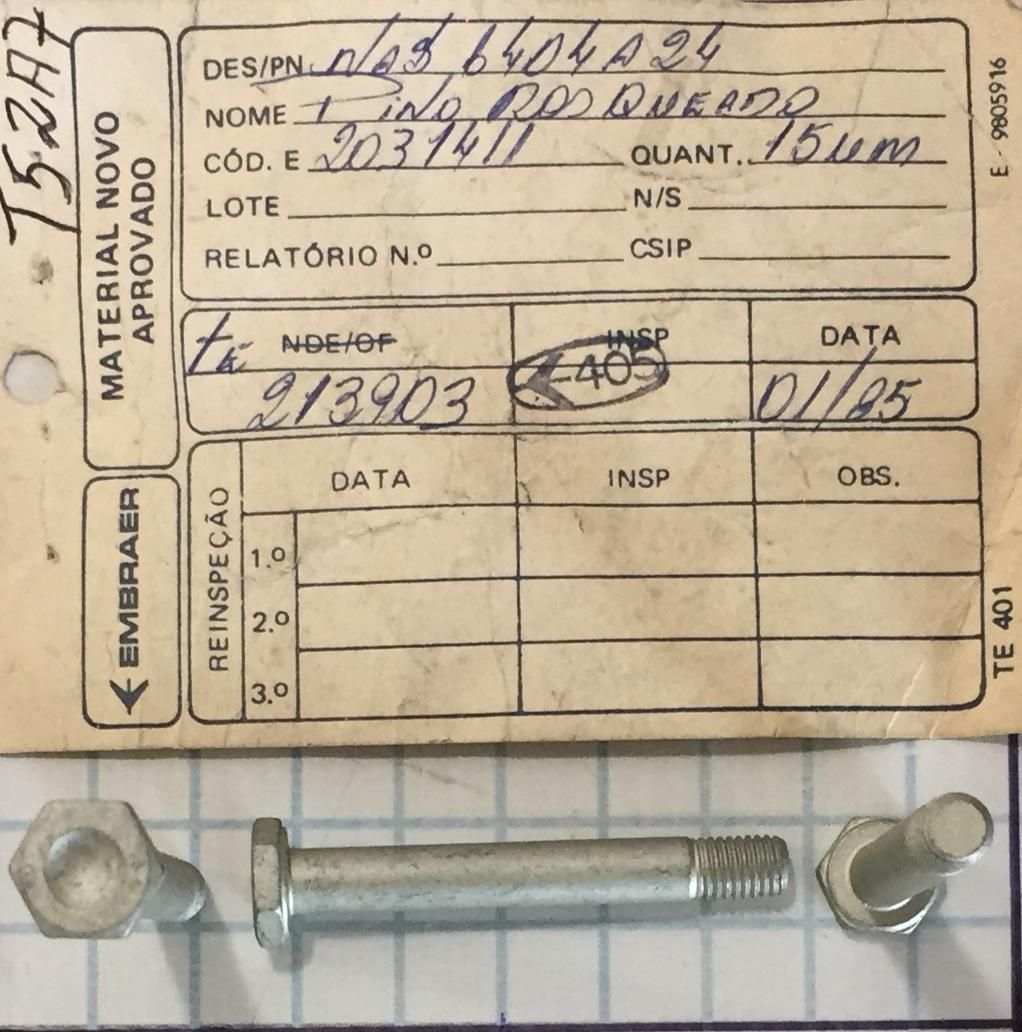 T52A7
MATERIAL NOVO
APROVADO
EMBRAER
DES/PN NAS 6404A24
NOME PINO ROSQUEADO
CÓD. E 2031411 QUANT. 15um
LOTE N/S
RELATÓRIO N.º CSIP
NDE/OF INSP DATA
213903 405 01/85
REINSPEÇÃO
DATA INSP OBS.
1.º
2.º
3.º
E - 9805916
TE 401